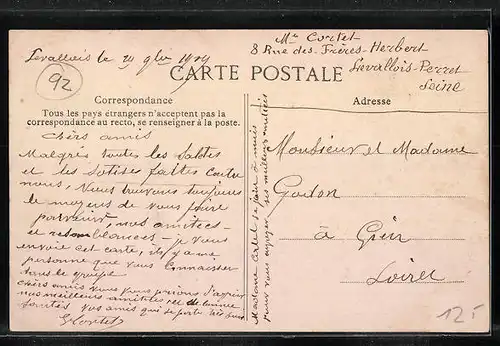 Mr Cortet
8 Rue des Frères-Herbert
Levallois-Perret
Seine
Levallois le 29
92
CARTE POSTALE
Correspondance
Tous les pays étrangers n'acceptent pas la
correspondance au recto, se renseigner à la poste.
Chers amis
Malgrés toutes les Saletés
et les Sotises faittes contre
nous, Nous trouvons toujours
le moyens de vous faire
parvenir, nos amitiees
et resemblances - je vous
envoie cet carte, il y a une
personne que vous Connaisser
dans le groupe.
Chers amis Nous vous prions d'agréer
nos meilleurs amitiés et de bonne
Santés vos amis qui se porte très bien
G Cortet
Madame Cortet se joint à mois
pour vous envoyer ses meilleurs amitiées
Adresse
Monsieur et Madame
Godon
à Gien
Loiret
12,-